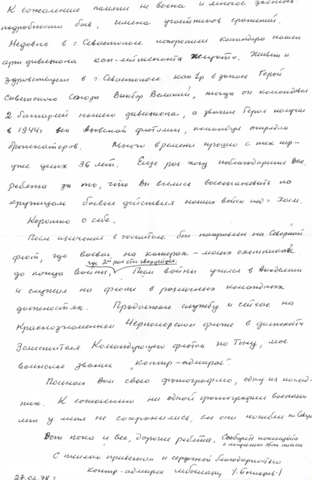 К сожалению память не вечна и многое
подробности боя, имена участников сражений.
Недавно в г. Севастополе похоронили командира нашего
арт дивизиона кап-лейтенанта
Здравствует в г. Севастополе кап 1р в запасе Герой
Советского Союза Виктор Великий, тогда он командовал
2 батареей нашего дивизиона, а звание Героя получил
в 1944г. на Азовской флотилии, командуя отрядом
бронекатеров. Много времени прошло с тех пор -
уже целых 36 лет. Еще раз хочу поблагодарить Вас,
ребята за то, что Вы взялись восстановить по
крупицам боевые действия наших войск под г. Холм.
Коротко о себе.
После излечения в госпитале был направлен на Северный
флот, где воевал на катерах - малых охотниках
до конца войны, После войны учился в Академии
и служил на флоте в различных командных
должностях. Продолжаю службу и сейчас на
Краснознаменном Черноморском флоте в должности
Заместителя Командующего флотом по Тылу, мое
воинское звание "контр-адмирал".
Посылаю Вам свою фотографию, одну из послед-
них. К сожалению ни одной фотографии военных
лет у меня не сохранились, все они погибли на
Вот пока и все, дорогие ребята. Сообщите пожалуйста
о получении этого письма
С теплым приветом и сердечной благодарностью
контр-адмирал
27.02.78 г